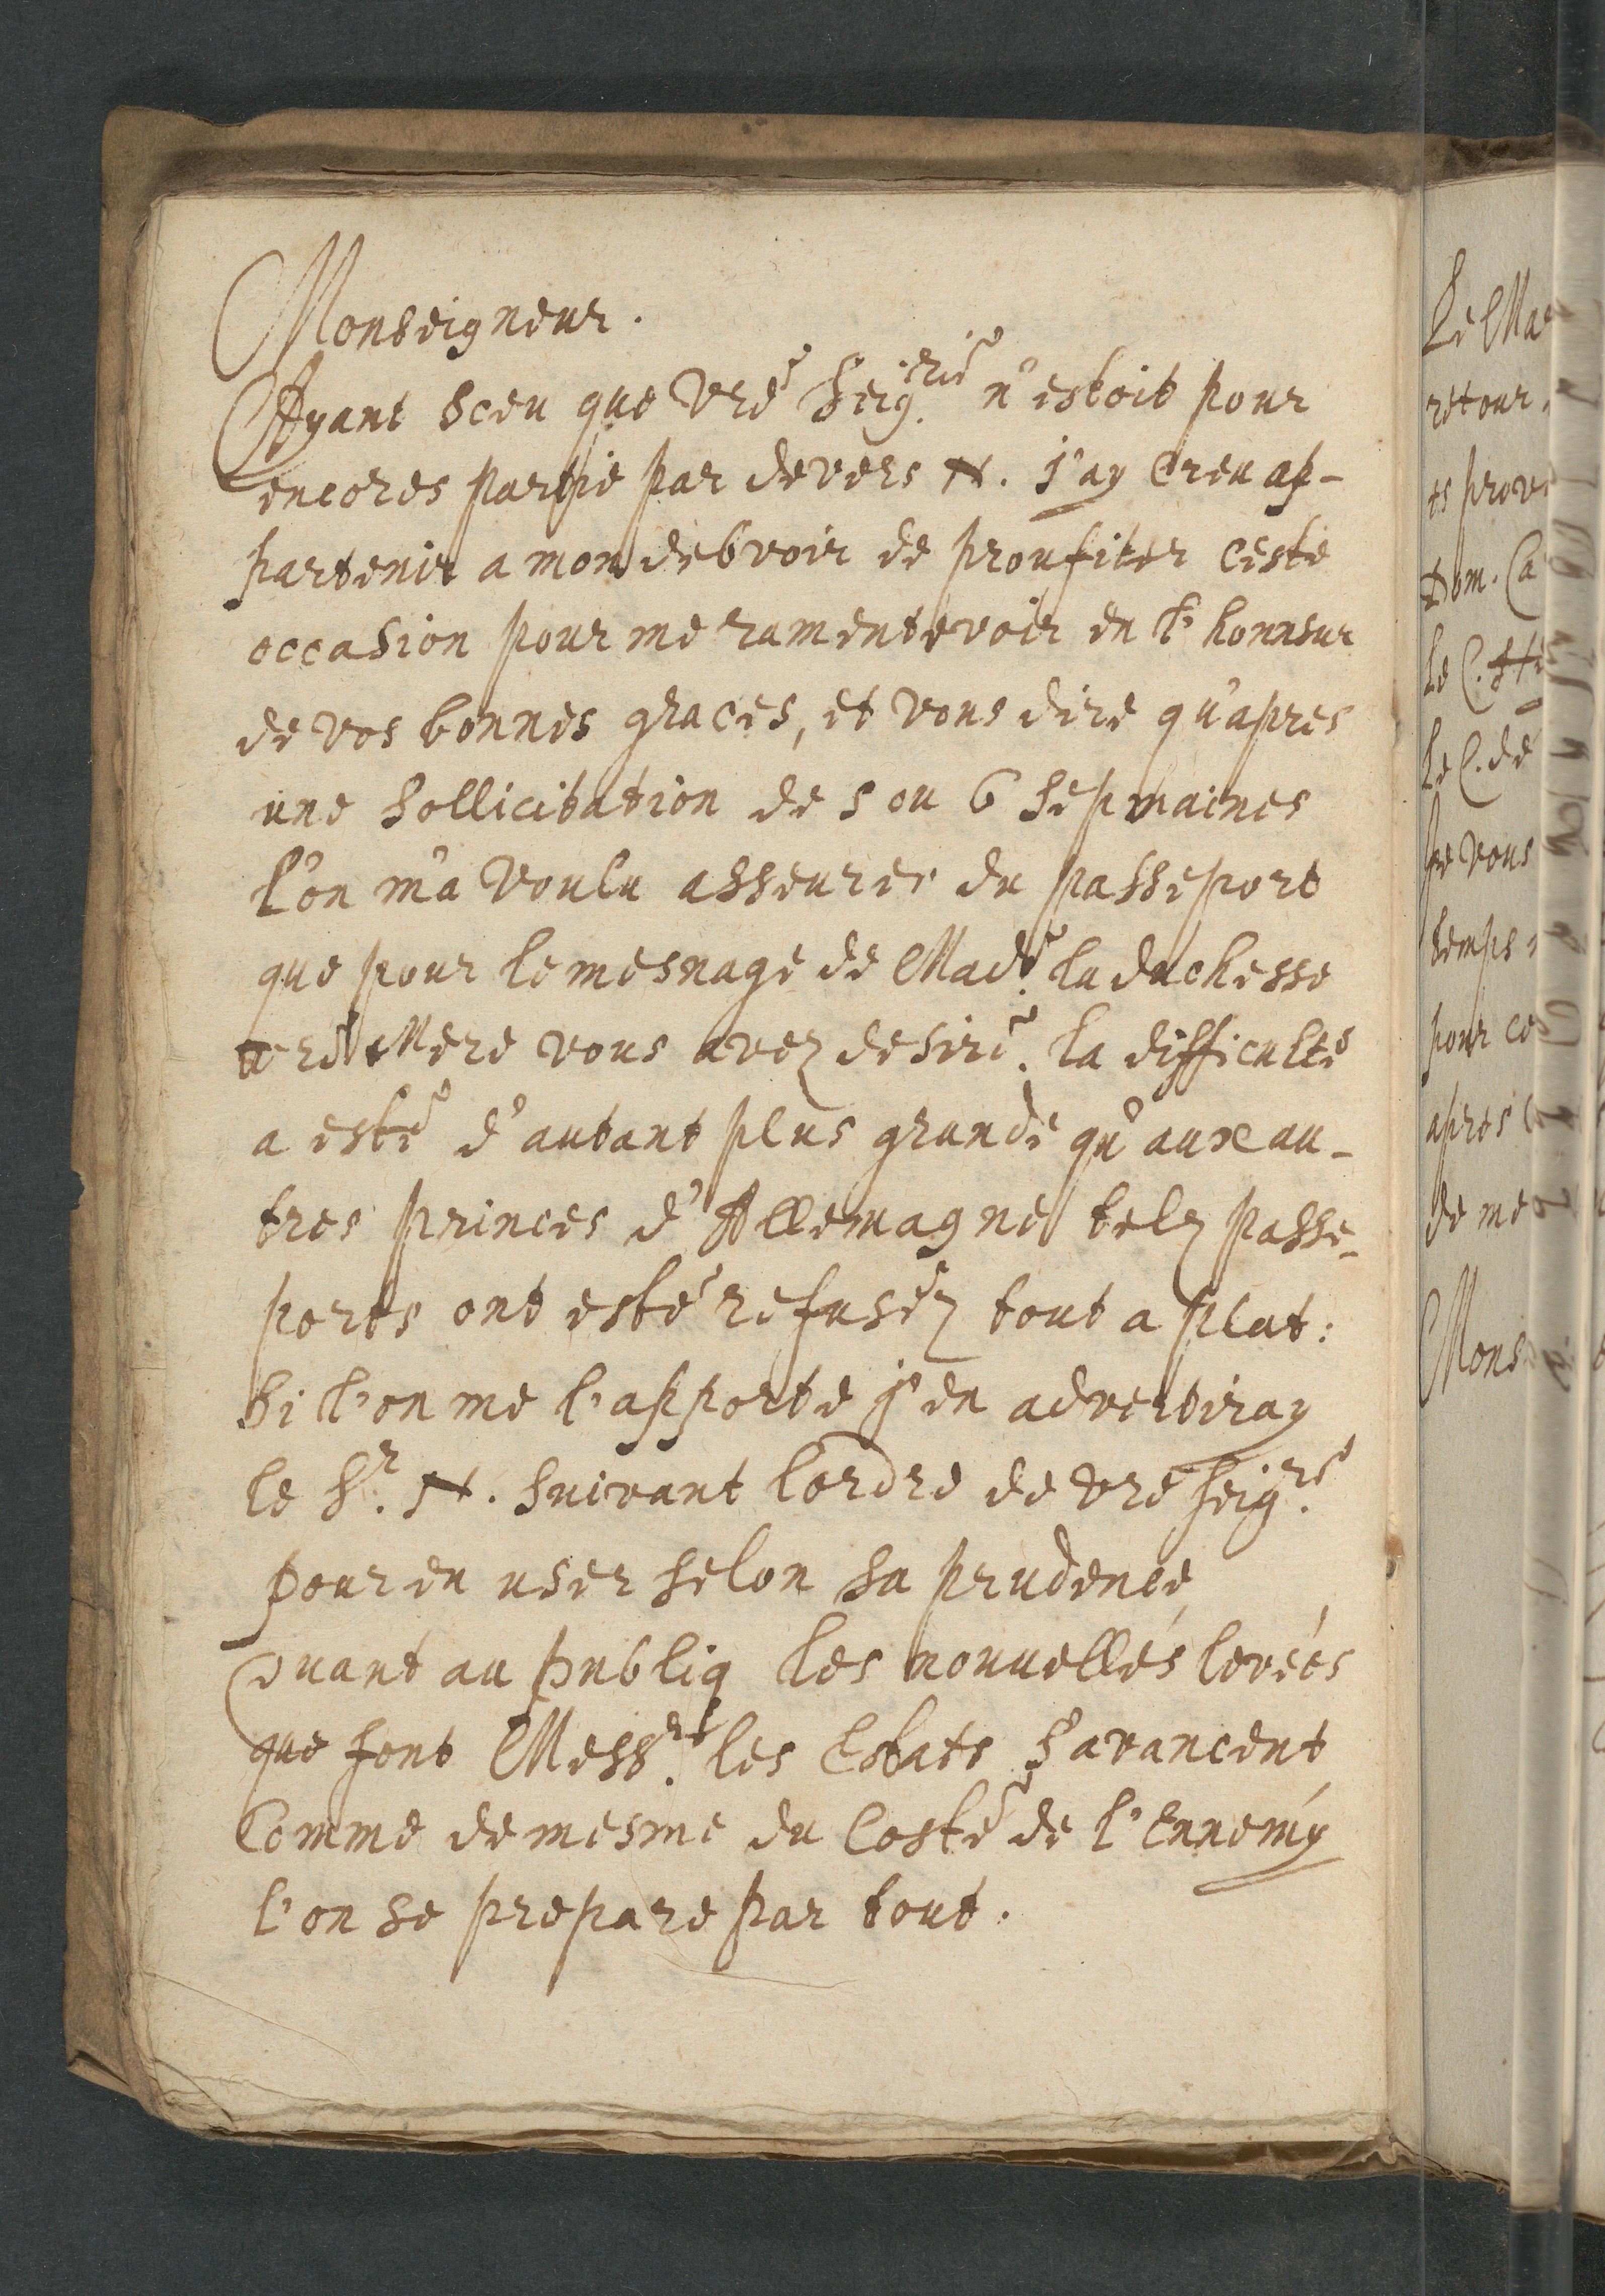 Monseigneur.
Ayant sceu que vre Seig.rie n'estoit pour
encores partie par devers N. j'ay creu ap-
partenir a mon debvoir de proufiter ceste
occasion pour me ramentevoir en l'honneur
de vos bonnes graces, et vous dire qu'apres
une sollicitation de 5 ou 6 sepmaines
l'on m'a voulu asseurer du passeport
que pour le mesnage de Mad.e la duchesse
vre Mere vous avez desiré. la difficulté
a esté d'autant plus grande qu'aux au-
tres princes d'Allemagne telz passe-
ports ont esté refuséz tout a plat:
Si l'on me l'apporte j'en advertiray
le Sr. N. suivant lordre de vre seig.rie
pour en user selon sa prudence
Quant au publiq les nouvelles levées
que font Mess.rs les Estats s'avancent
Comme de mesme du Costé de l'Ennemy
l'on se prepare par tout.
Le Mar
retour.
es prov
Dom. Ca
le C.
le C. de
je vous
temps
pour ce
apres
de me
Mons